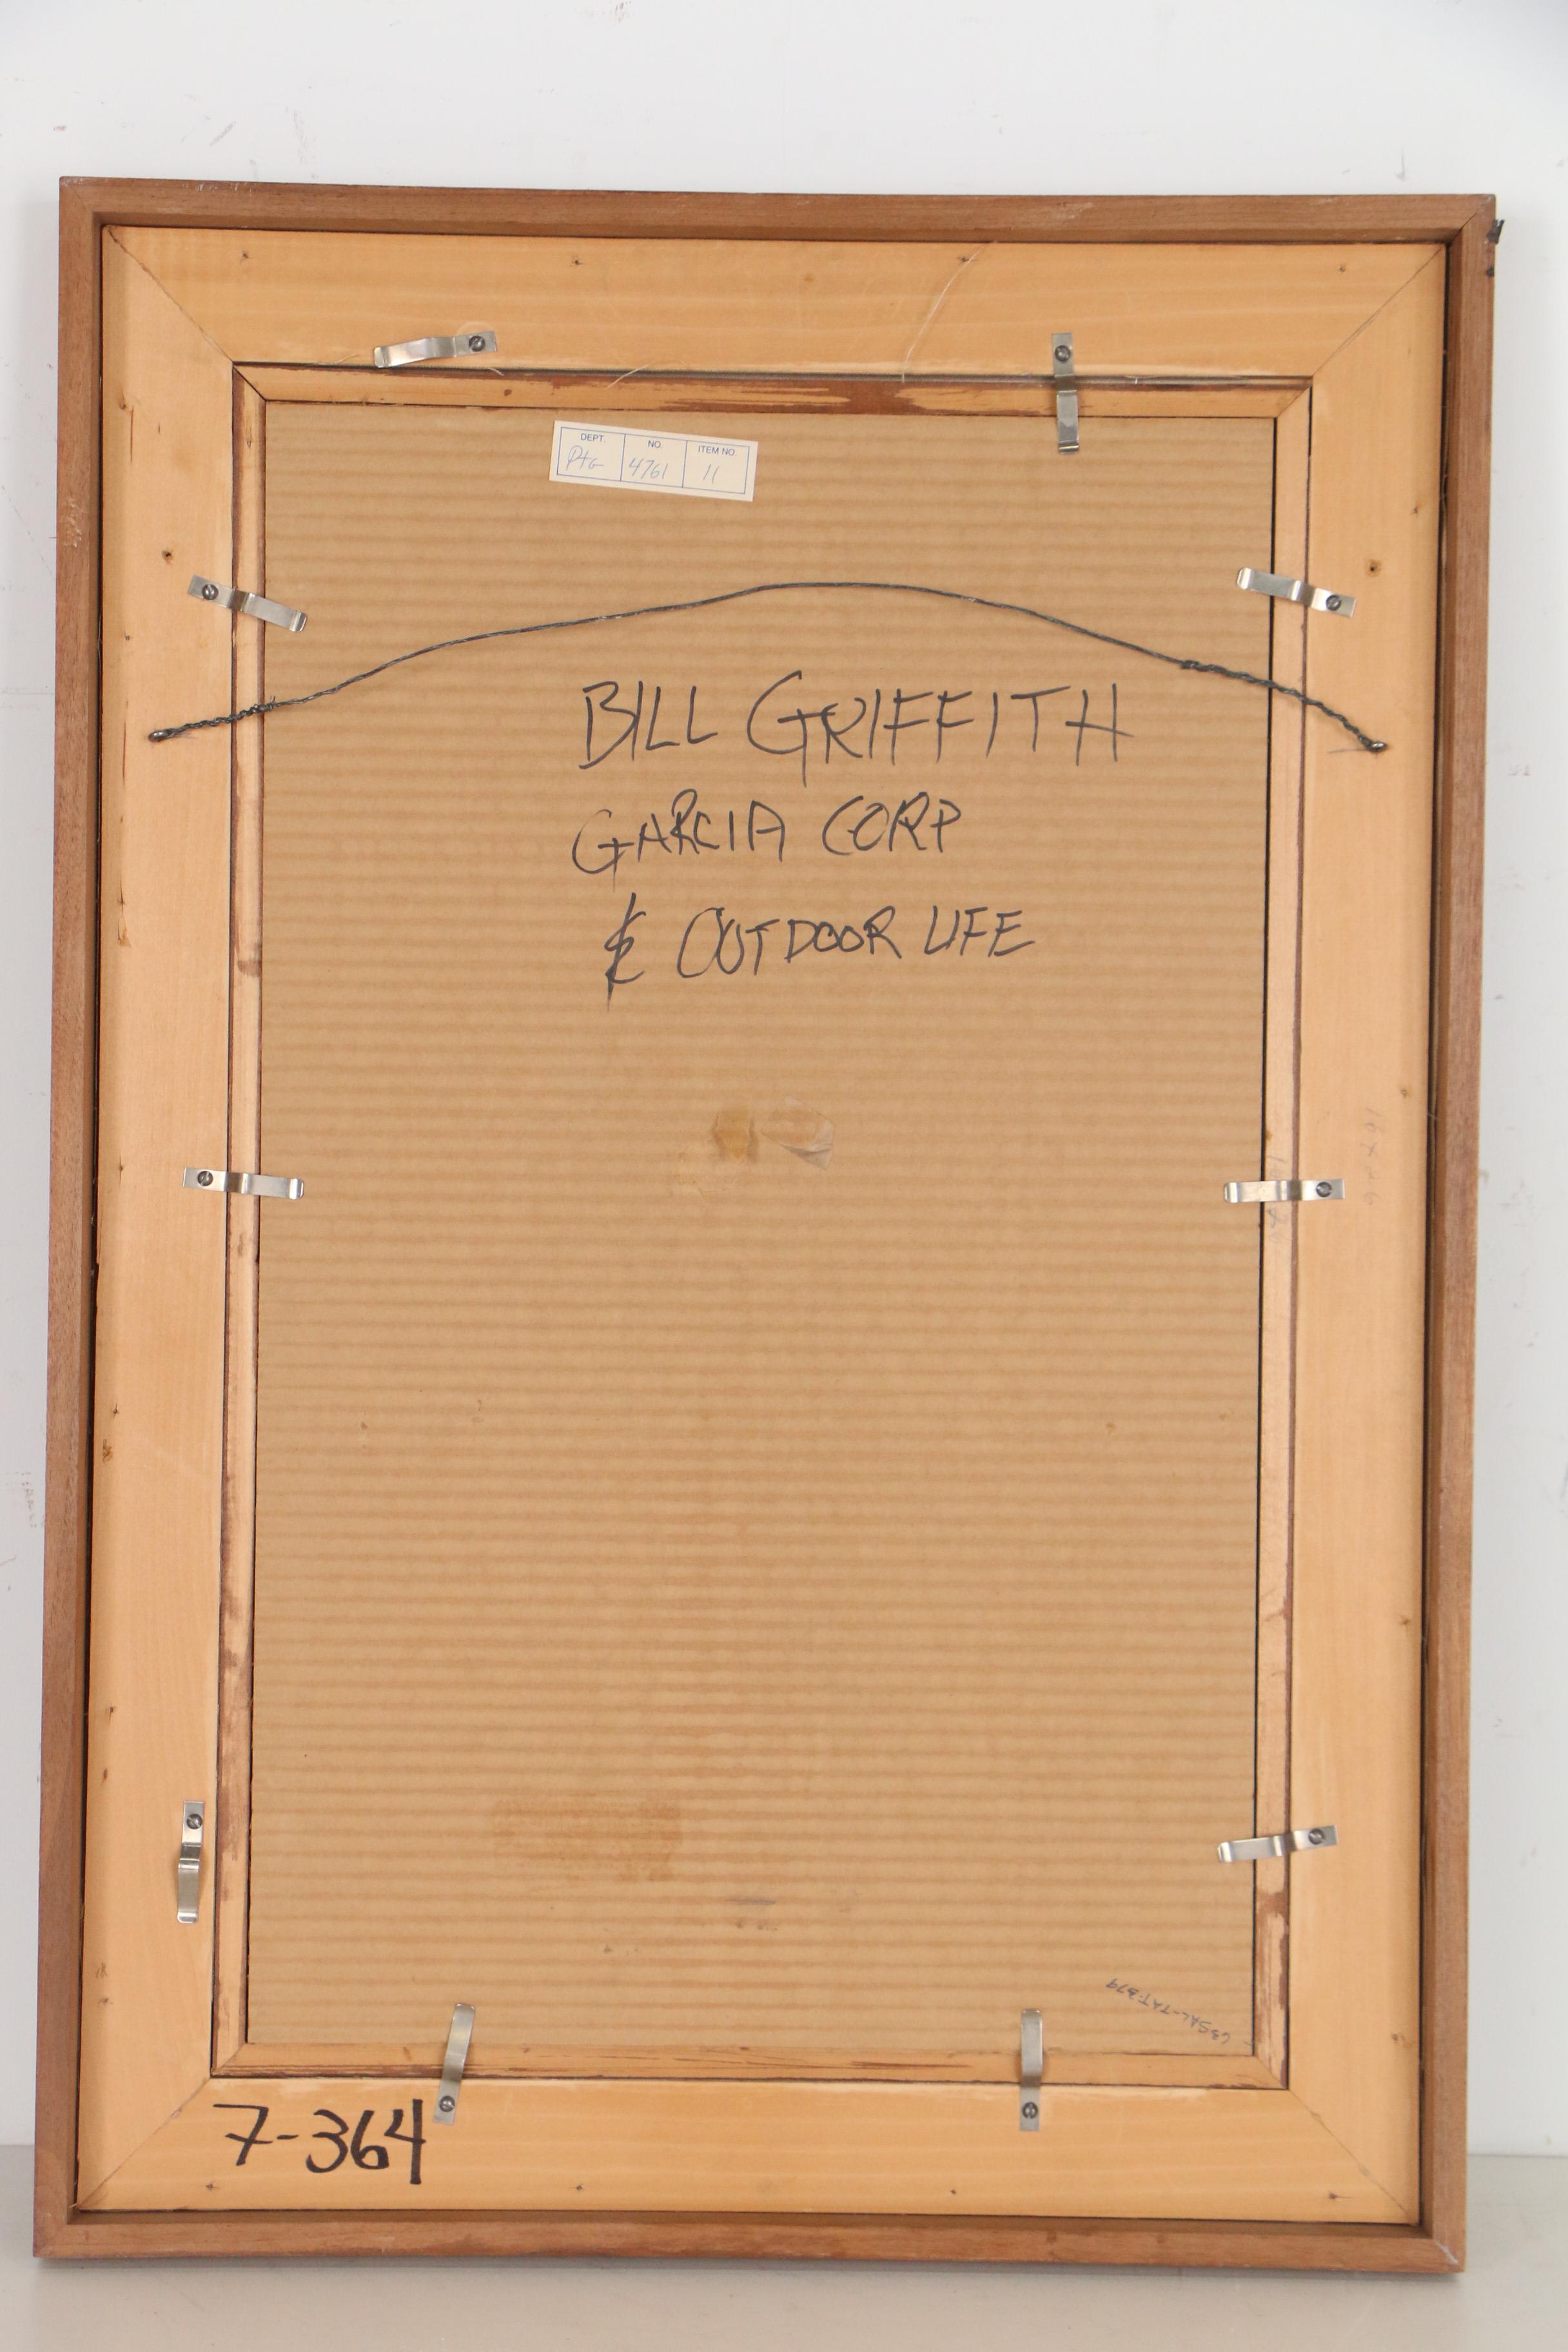 DEPT. NO. ITEM NO.
Ptg 4761 11
BILL GRIFFITH
GARCIA CORP
& OUTDOOR LIFE
7-364